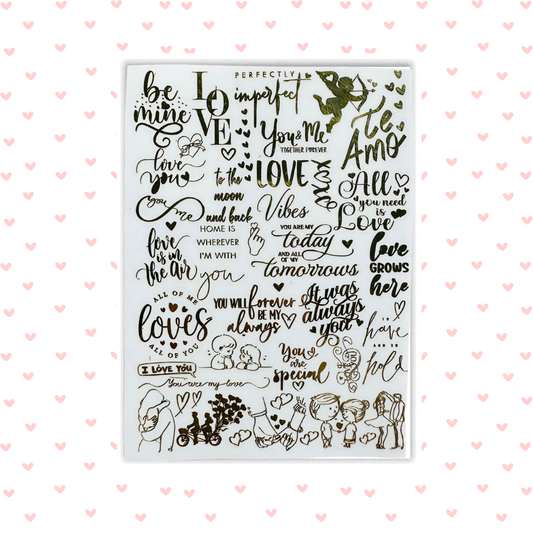 be
mine
LOVE
PERFECTLY
imperfect
Te
Amo
love
you
You & Me
TOGETHER FOREVER
to the
moon
and back
LOVE
Vibes
xoxo
All
you need
is
Love
You
me
HOME IS
WHEREVER
I'M WITH
you
YOU ARE MY
today
AND ALL
OF MY
tomorrows
love
is in
the air
love
GROWS
here
ALL OF ME
loves
ALL OF YOU
YOU WILL forever
BE MY
always
It was
always
you
to
have
AND TO
hold
I LOVE YOU
You are my love
You
are
special